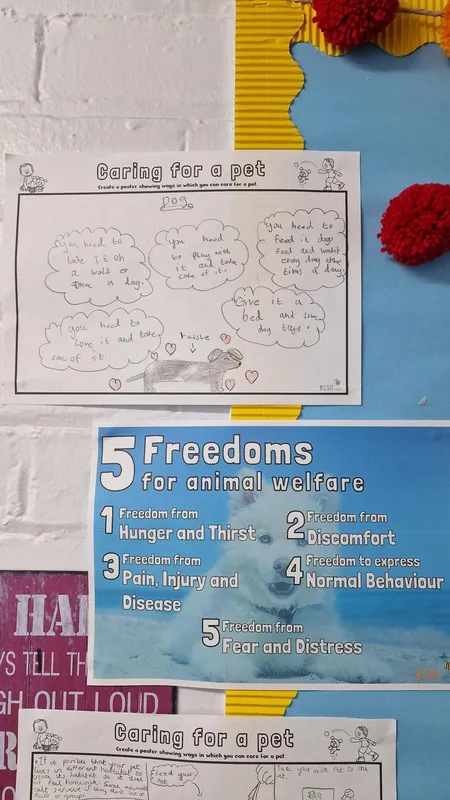 Caring for a pet
Create a poster showing ways in which you can care for a pet.
Dog
You need to
take it on
a walk or
a day.
You need
to play with
it and take
care of it.
You need to
feed it dogs
food and water
every day three
times a day.
You need to
love it and take
care of it.
Give it a
bed and some
dog toys.
russle
5 Freedoms
for animal welfare
1 Freedom from
Hunger and Thirst
2 Freedom from
Discomfort
3 Freedom from
Pain, Injury and
Disease
4 Freedom to express
Normal Behaviour
5 Freedom from
Fear and Distress
HA
YS TELL TH
GH OUT LOUD
Caring for a pet
Create a poster showing ways in which you can care for a pet.
It is possible that your pet
lives in different habitat so
create its habitat so it does
not feel homesick. Some animals
can't survive if they don't live in
Feed your
pet